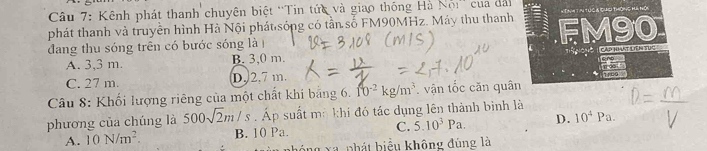 Câu 7: Kênh phát thanh chuyên biệt “Tin tức và giao thông Hà Nội” của đài
phát thanh và truyền hình Hà Nội phát sóng có tần số FM90MHz. Máy thu thanh
đang thu sóng trên có bước sóng là
A. 3,3 m.
B. 3,0 m.
C. 27 m.
D. 2,7 m.
Câu 8: Khối lượng riêng của một chất khí bằng 6.10⁻² kg/m³. vận tốc căn quân
phương của chúng là 500√2m / s . Áp suất mà khí đó tác dụng lên thành bình là
A. 10 N/m².
B. 10 Pa.
C. 5.10³ Pa.
D. 10⁴ Pa.
phát biểu không đúng là
FM90
CẬP NHẬT LIÊN TỤC
= 3.10⁸ (m/s)
= 2,7.10¹⁰
D = m/V